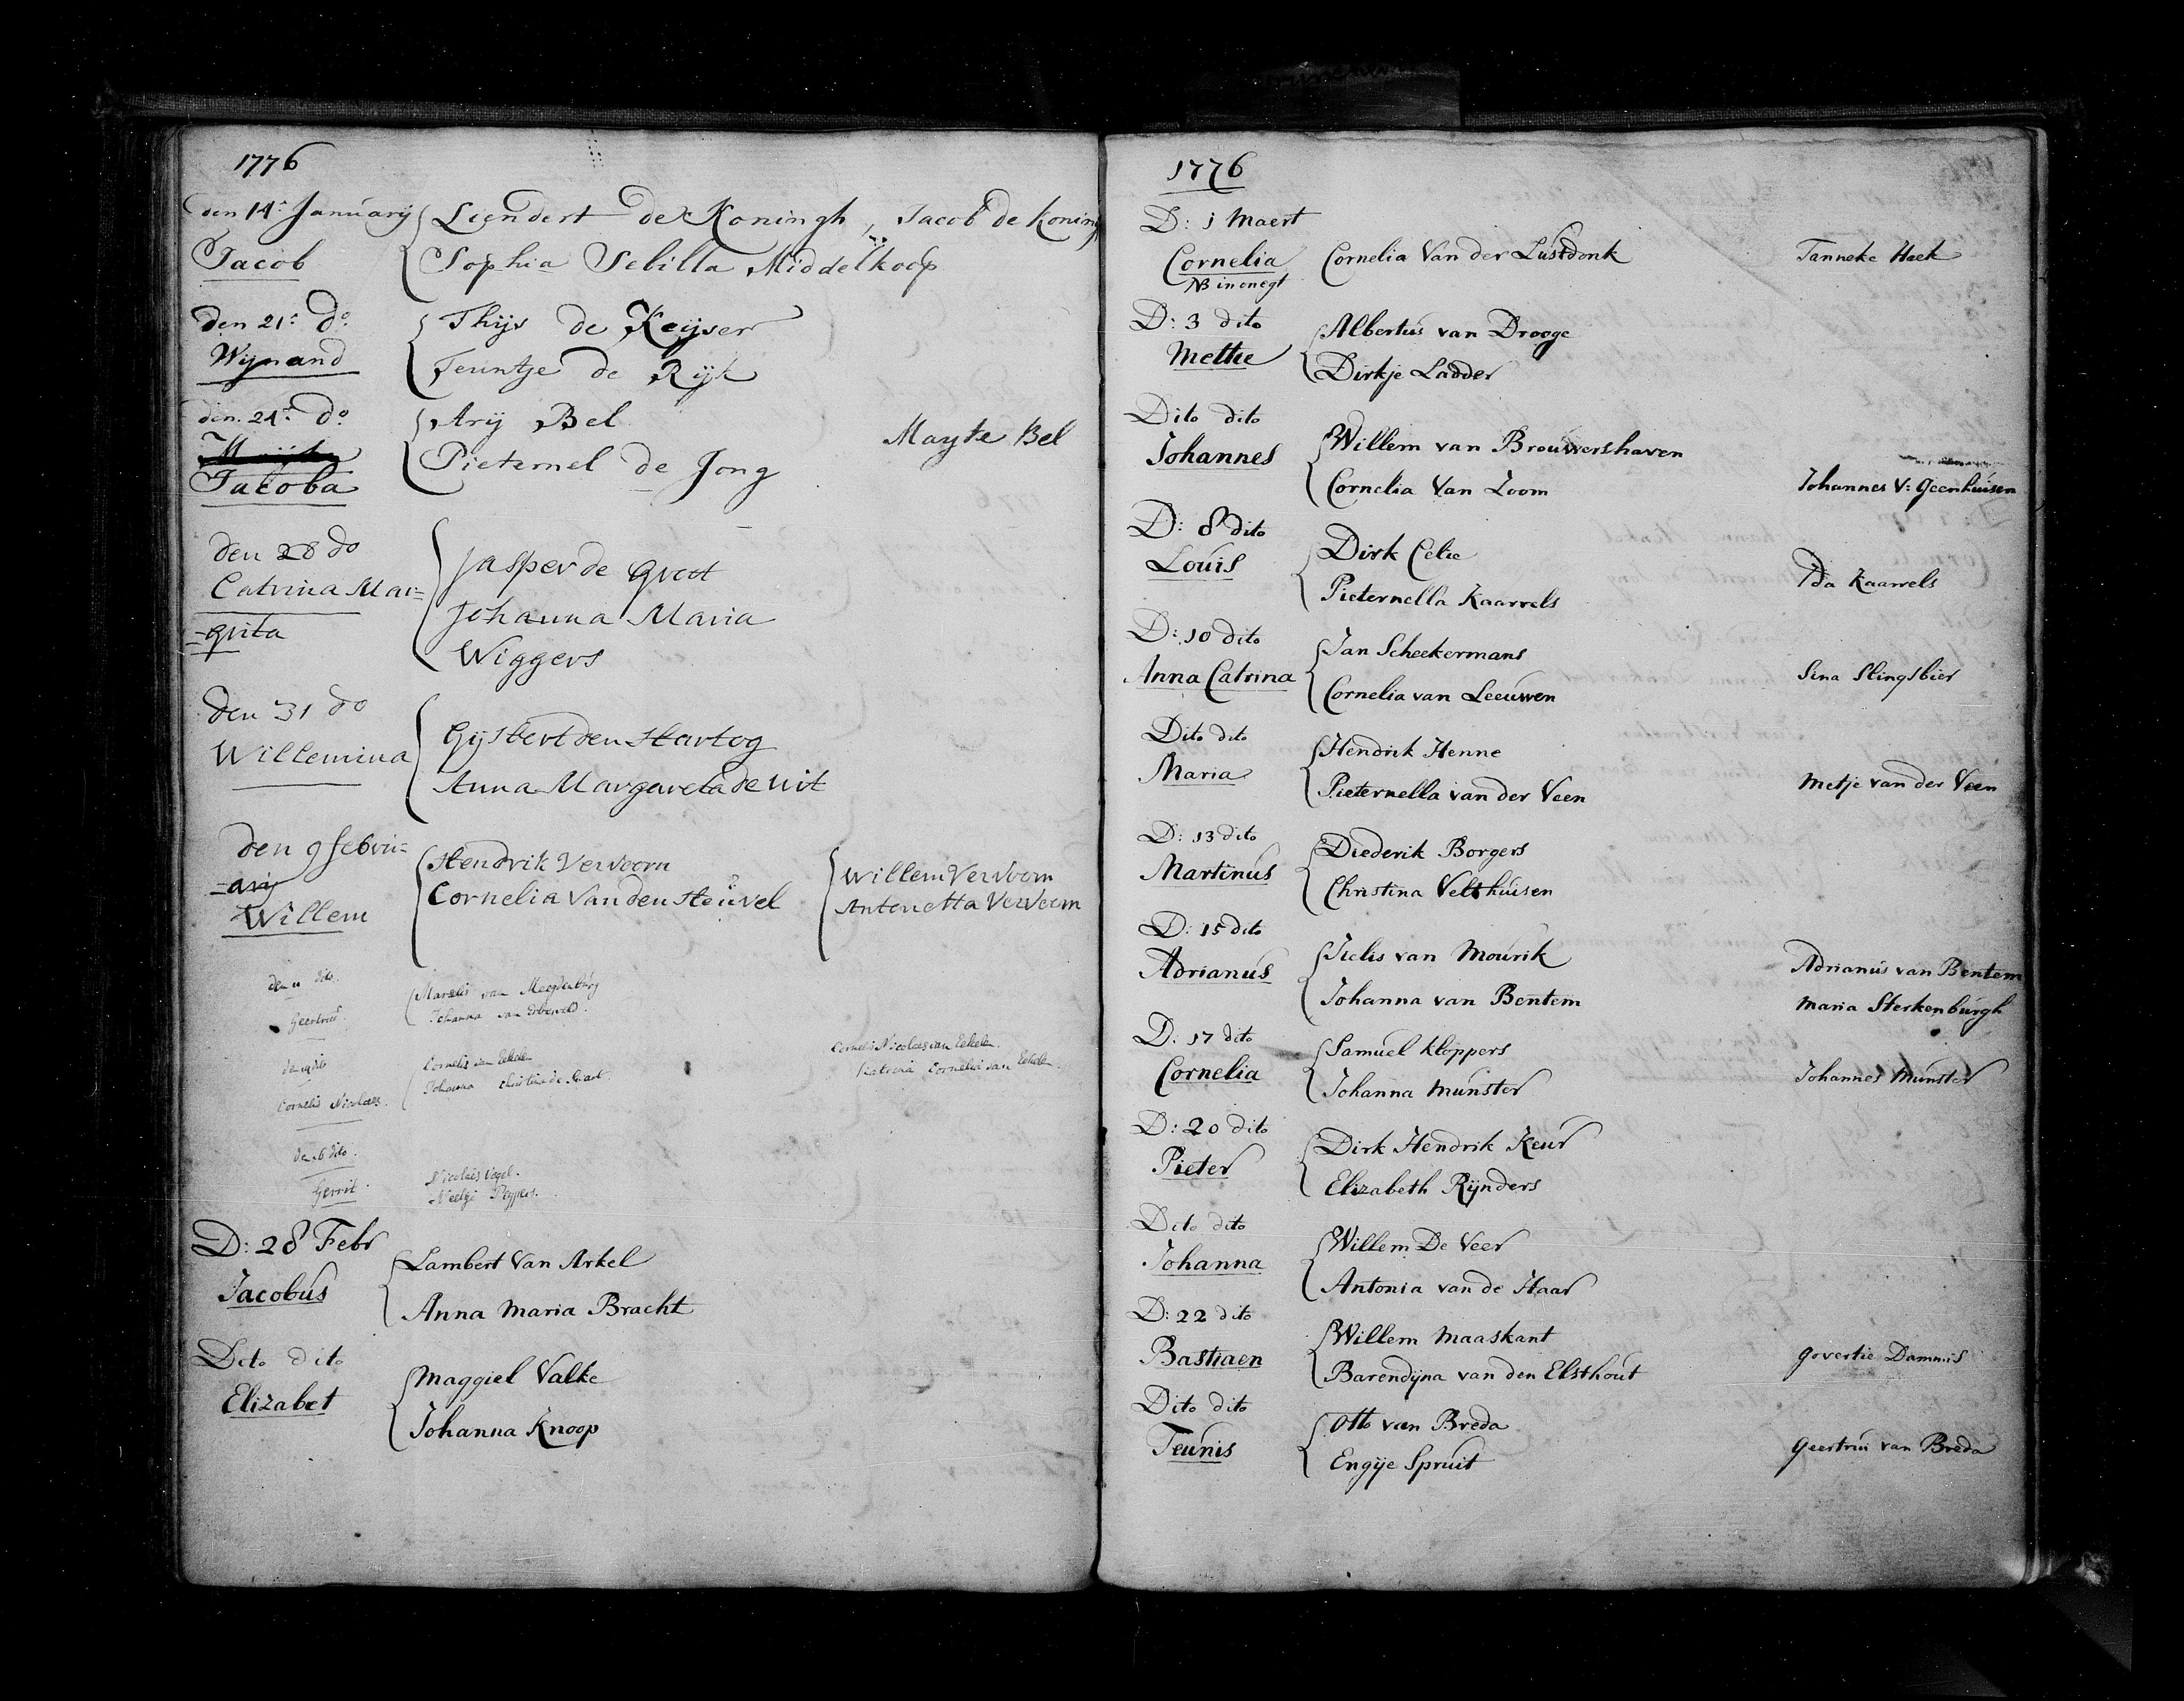 1776
den 14: January
Jacob
Liendert de Koningh, Jacob de Koning
Sophia Sebilla Middelkoop
Den 21: do
Wijnand
Thijs de Keijser
Teuntje de Rijk
den. 24: do
Jacoba
Arij Bel
Pieternel de Jong
Mayte Bel
Den 28 do
Catrina Mar=
=grita
Jasper de Groot
Johanna Maria
Wiggers
Den 31 do
Willemina
Gijsbert den Hartog
Anna Margareta de Wit
Den 9 febru=
=arij
Willem
Hendrik Vervoorn
Cornelia Van den Heuvel
Willem Vervoorn
Antonetta Vervoorn
den 11 dito
Geertrud
van
Johanna van
dito
Cornelis Nicolaes.
Cornelis van Eekelen
Johanna Christina de
Cornelis Nicolaes van Eekelen.
Catrina Cornelia van Eekelen.
dito.
Gerrit
Nicolaes Vogel.
Neelje Peypers.
D: 28 Febr
Jacobus
Lambert Van Arkel
Anna Maria Bracht
Dito dito
Elizabet
Maggiel Valke
Johanna Knoop
1776
D: 1 Maert
Cornelia
NB in onegt
Cornelia Van der Lustdonk
Tanneke Haek
D: 3 dito
Mettie
Albertus van Drooge
Dirkje Ladder
Dito dito
Johannes
Willem van Brouwershaven
Cornelia Van Loom
Johannes V: Geenhuisen
D: 8 dito
Louis
Dirk Celie
Pieternella Kaarrels
Ida Kaarrels
D: 10 dito
Anna Catrina
Jan Scheekermans
Cornelia van Leeuwen
Sena Slingsbier
Dito dito
Maria
Hendrik Henne
Pieternella van der Veen
Metje van der Veen
D: 13 dito
Martinus
Diederik Borgers
Christina Velthuisen
D: 15 dito
Adrianus
Jielis van Mourik
Johanna van Bentem
Adrianus van Bentem
Maria Sterkenburgh
D: 17 dito
Cornelia
Samuel Kloppers
Johanna Munster
Johannes Munster
D: 20 dito
Pieter
Dirk Hendrik Keur
Elizabeth Rijnders
Dito dito
Johanna
Willem De Veer
Antonia van de Haar
D: 22 dito
Bastiaen
Willem Maaskant
Barendijna van den Elsthout
Govertie Dammis
Dito dito
Teunis
Otto van Breda
Engije Spruit
Geertrui van Breda